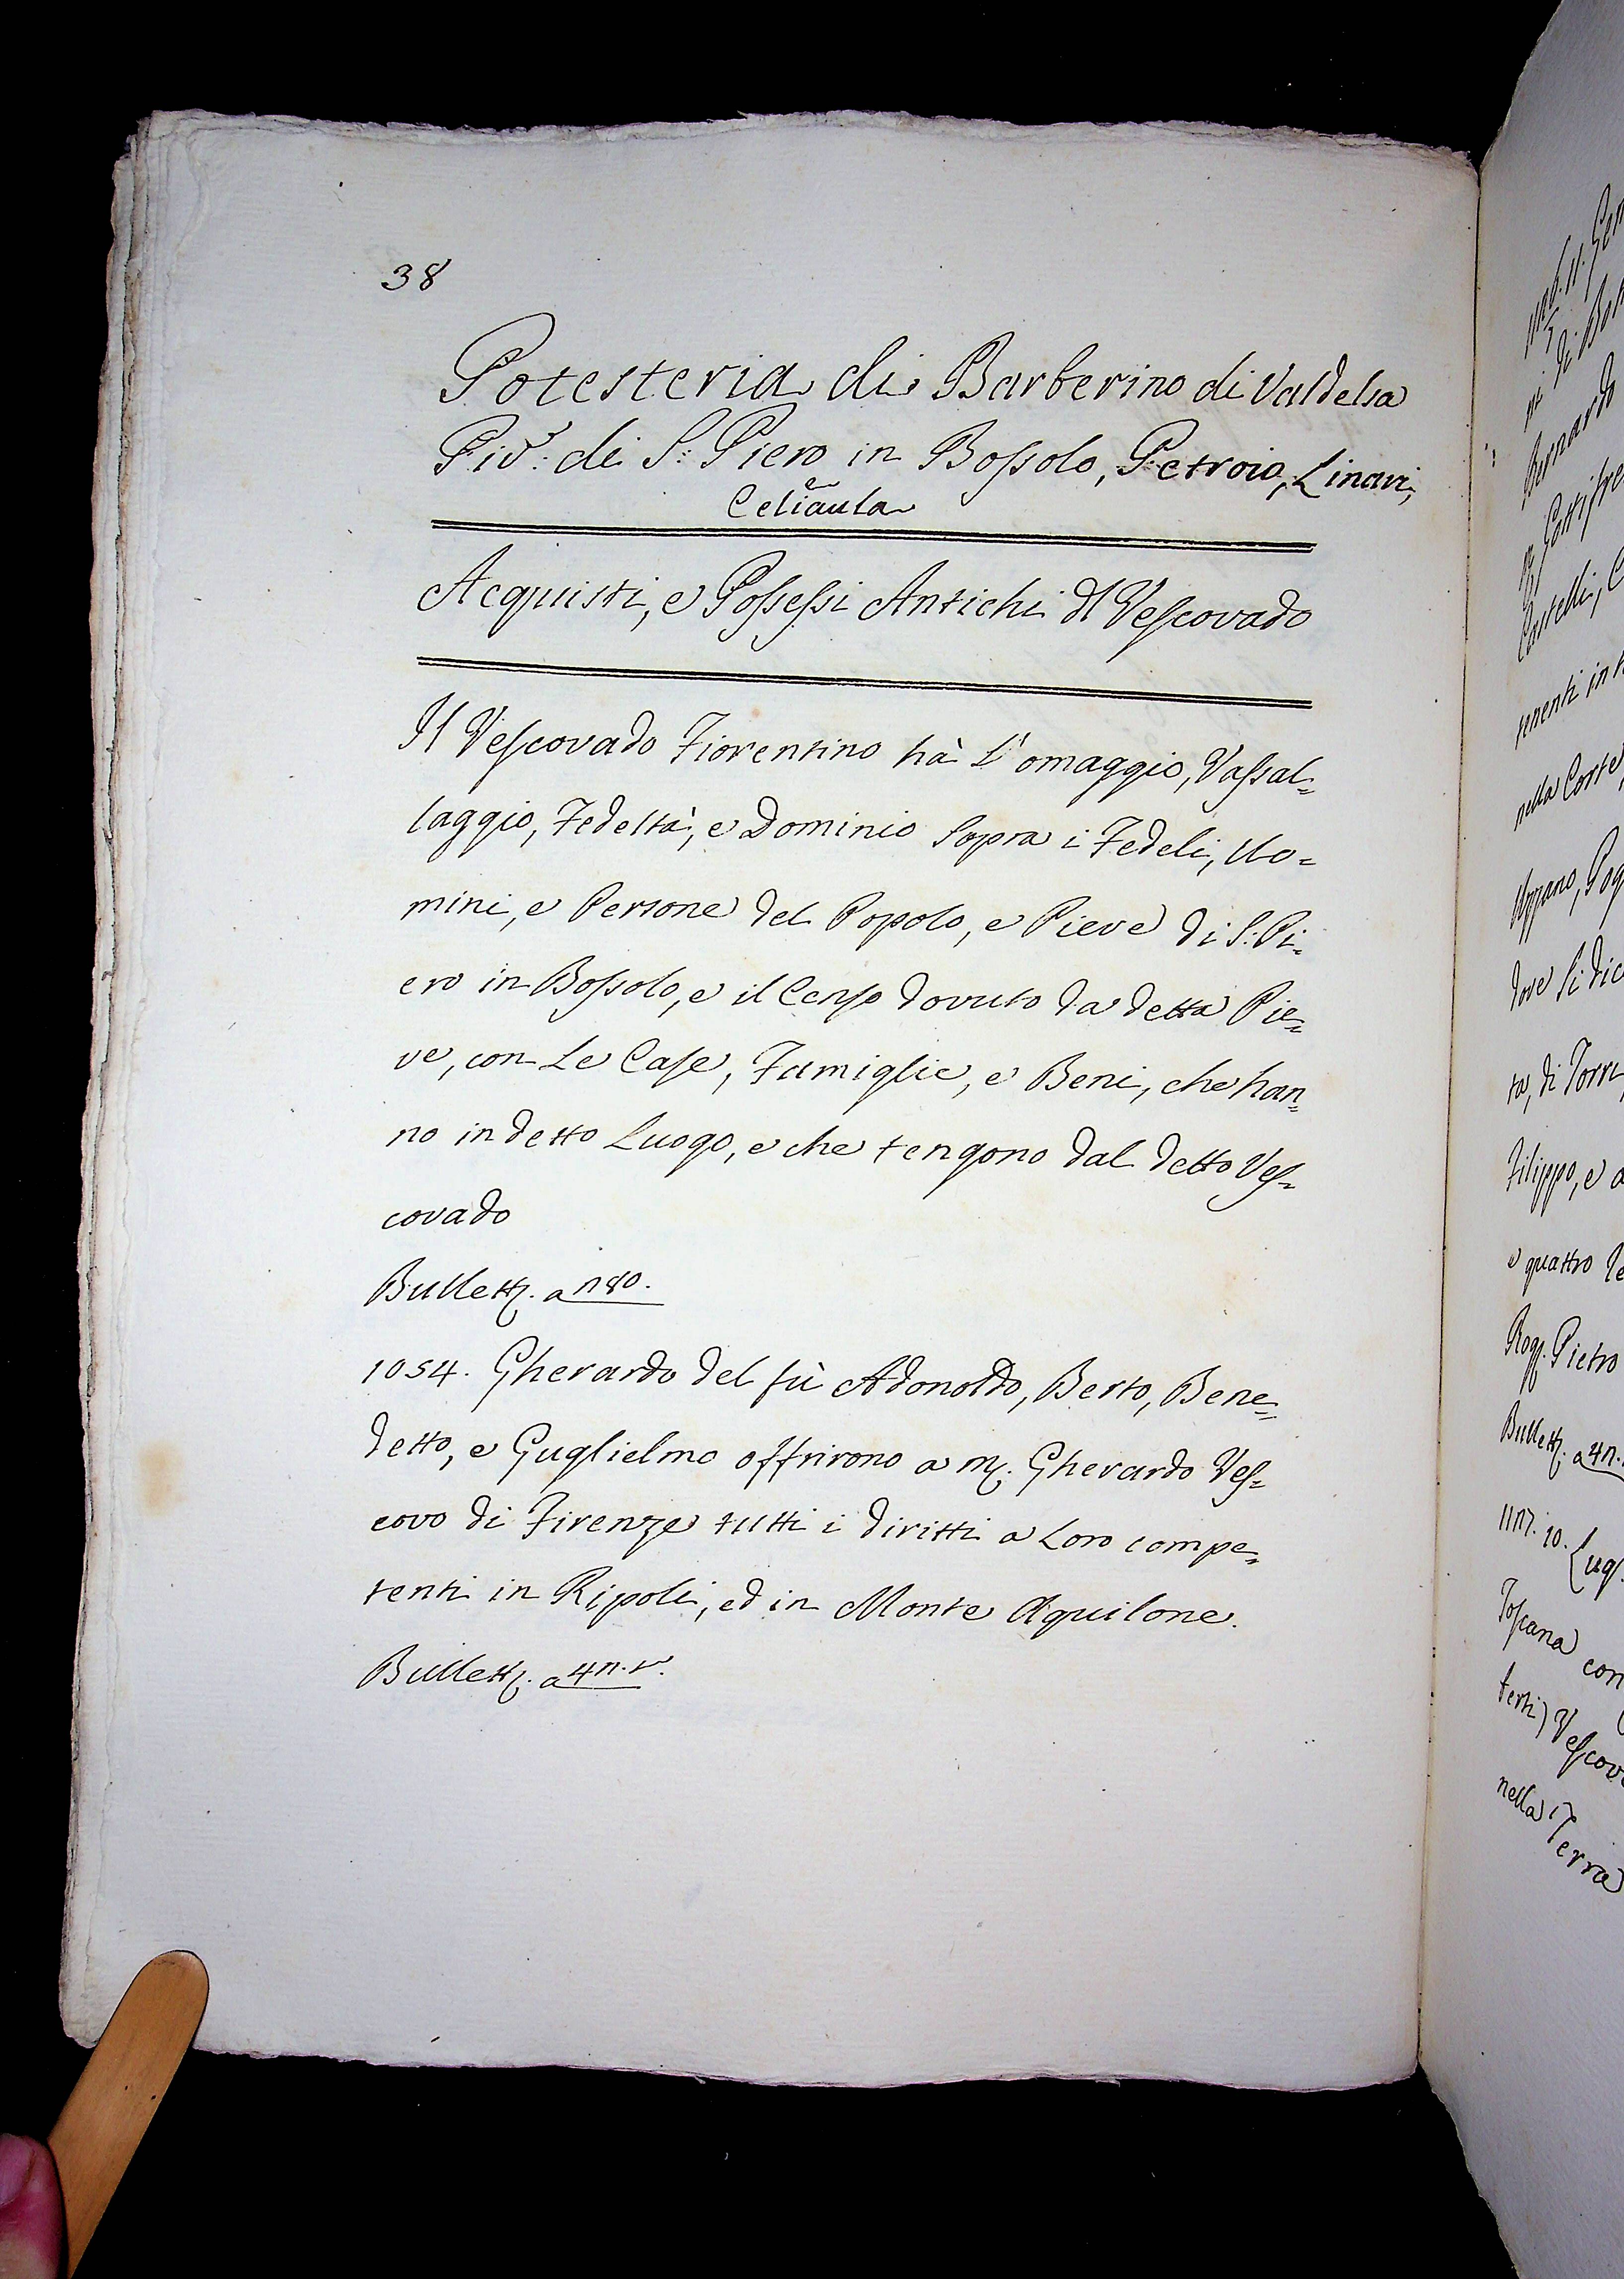 38
Potesteria di Barberino di Valdelsa
Piv.i di S: Piero in Bossolo, Petroio, Linari,
Celiaula
Acquisti, e Possessi Antichi dl Vescovado
Il Vescovado Fiorentino hà L'omaggio, Vassal=
laggio, Fedeltà, e Dominio Sopra i Fedeli, Uo=
mini, e Persone del Popolo, e Pieve di S: Pi=
ero in Bossolo, e il Censo dovuto da detta Pie=
ve, con Le Case, Famiglie, e Beni, che han=
no in detto Luogo, e che tengono dal detto Ves=
covado
Bullett. a
1054. Gherardo del fù Adonoldo, Berto, Bene=
detto, e Guglielmo offrirono a M. Gherardo Ves=
covo di Firenze tutti i diritti a Loro compe=
tenti in Ripoli, ed in Monte Aquilone.
Bullett. a
Bernardo
Castelli,
nenti in
nella Corte
dove Si dic
ta, di Torri
Filippo, e
e quattro
Rogg. Pietro
Bullett. a
10. Lug.
Toscana con
Vescov
nella Terra